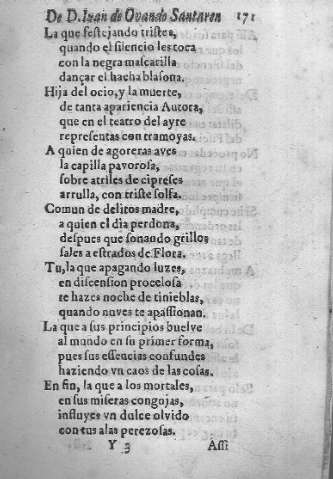 De D. Iuan de Ovando Santaren 171
La que festejando tristes,
quando el silencio les toca
con la negra mascarilla
dançar el hacha blasona.
Hija del ocio, y la muerte,
de tanta apariencia Autora,
que en el teatro del ayre
representas con tramoyas.
A quien de agoreras aves
la capilla pavorosa,
sobre atriles de cipreses
arrulla, con triste solfa.
Comun de delitos madre,
a quien el dia perdona,
despues que sonando grillos
sales a estrados de Flora.
Tu, la que apagando luzes,
en discension procelosa
te hazes noche de tinieblas,
quando nuves te apassionan.
La que a sus principios buelve
al mundo en su primer forma,
pues sus essencias confundes
haziendo vn caos de las cosas.
En fin, la que a los mortales,
en sus miseras congojas,
influyes vn dulce olvido
con tus alas perezosas.
Y 3 Assi